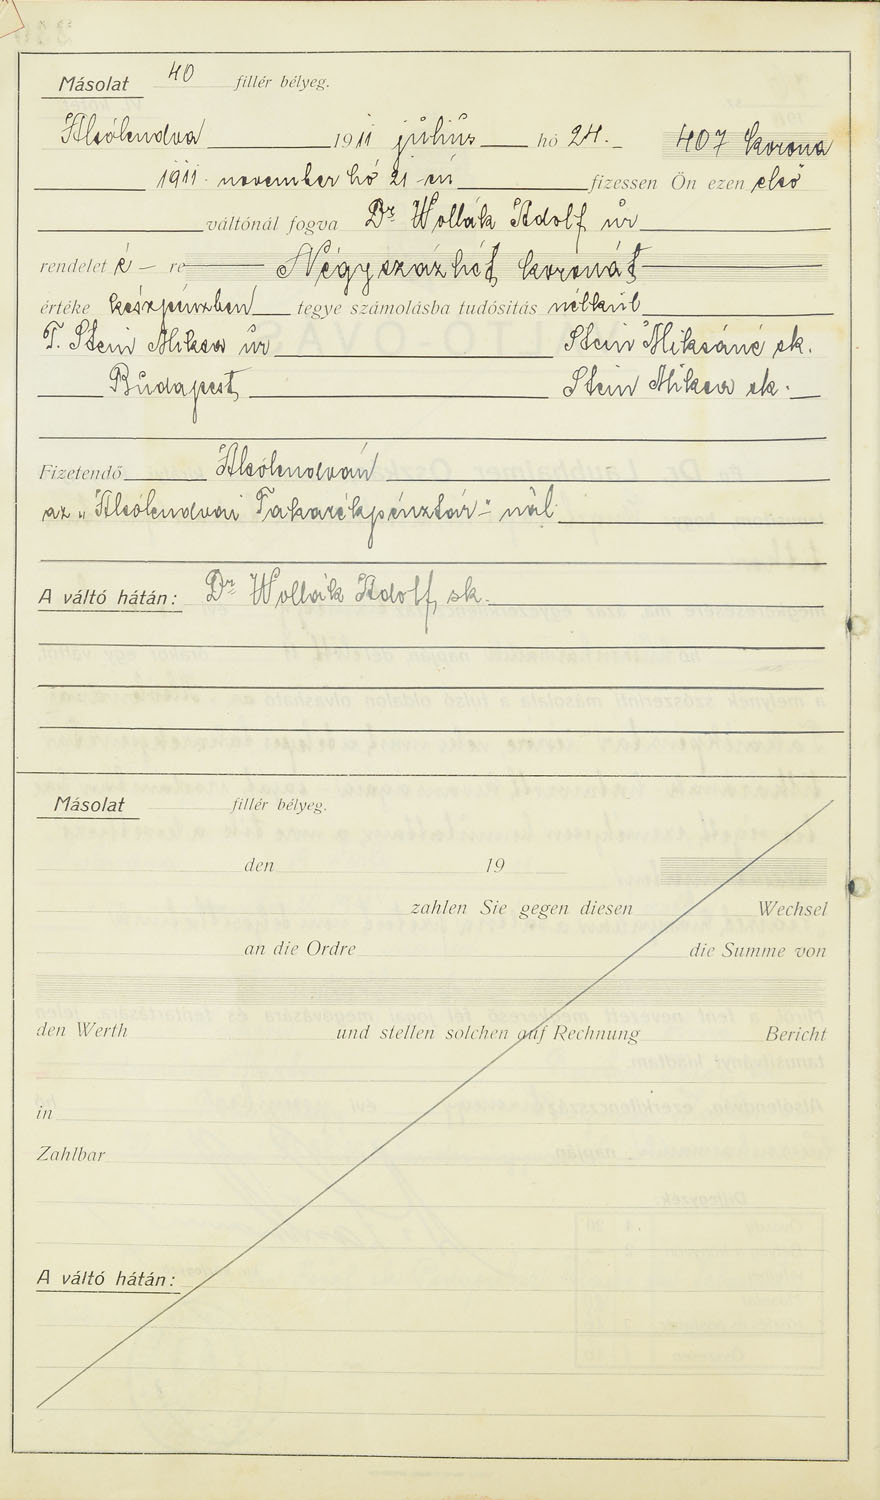 Másolat 40 fillér bélyeg.
Alsólendva 1911 július hó 24. 407 korona
1911. november hó 21-én fizessen Ön ezen első
váltónál fogva Dr Wollák Adolf úr
rendelet é – re Négyszázhét koronát
értéke készpénzben tegye számolásba tudósitás nélkül
T. Stein Miksa úr Stein Miksáné sk.
Budapest Stein Miksa sk.
Fizetendő Alsólendván
az „Alsólendvai Takarékpénztár"-nál
A váltó hátán: Dr Wollák Adolf sk.
Másolat fillér bélyeg.
den 19
zahlen Sie gegen diesen Wechsel
an die Ordre die Summe von
den Werth und stellen solchen auf Rechnung Bericht
in
Zahlbar
A váltó hátán: